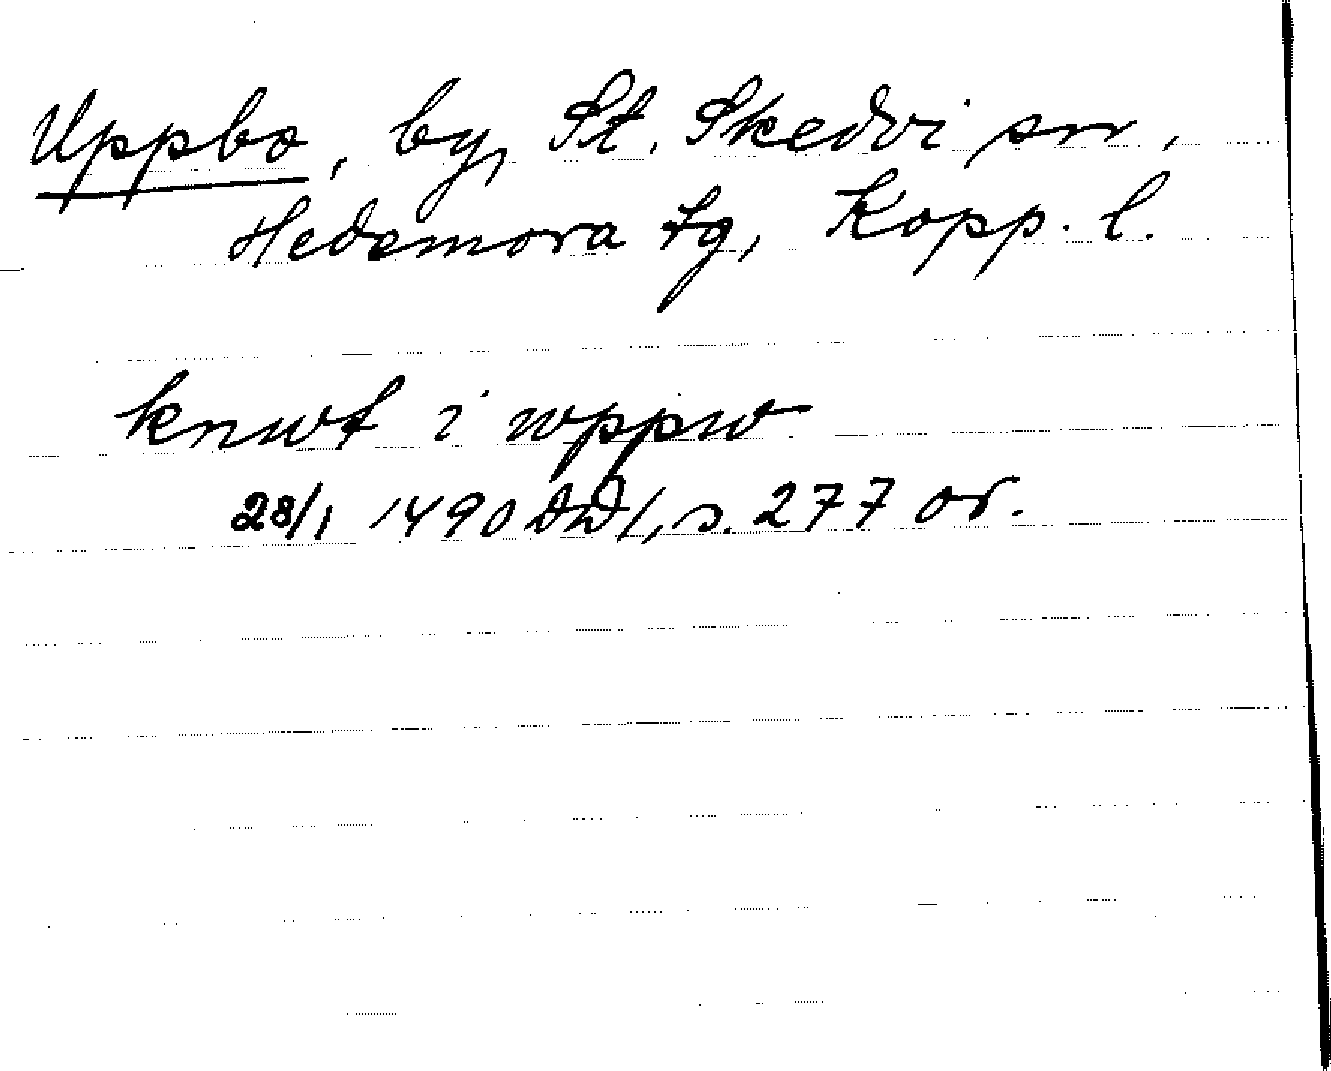 Uppbo, by, St. Skedvi sn,
Hedemora tg, Kopp. l.
knwt i wppw
28/1 1490 DD 1, s. 277 or.